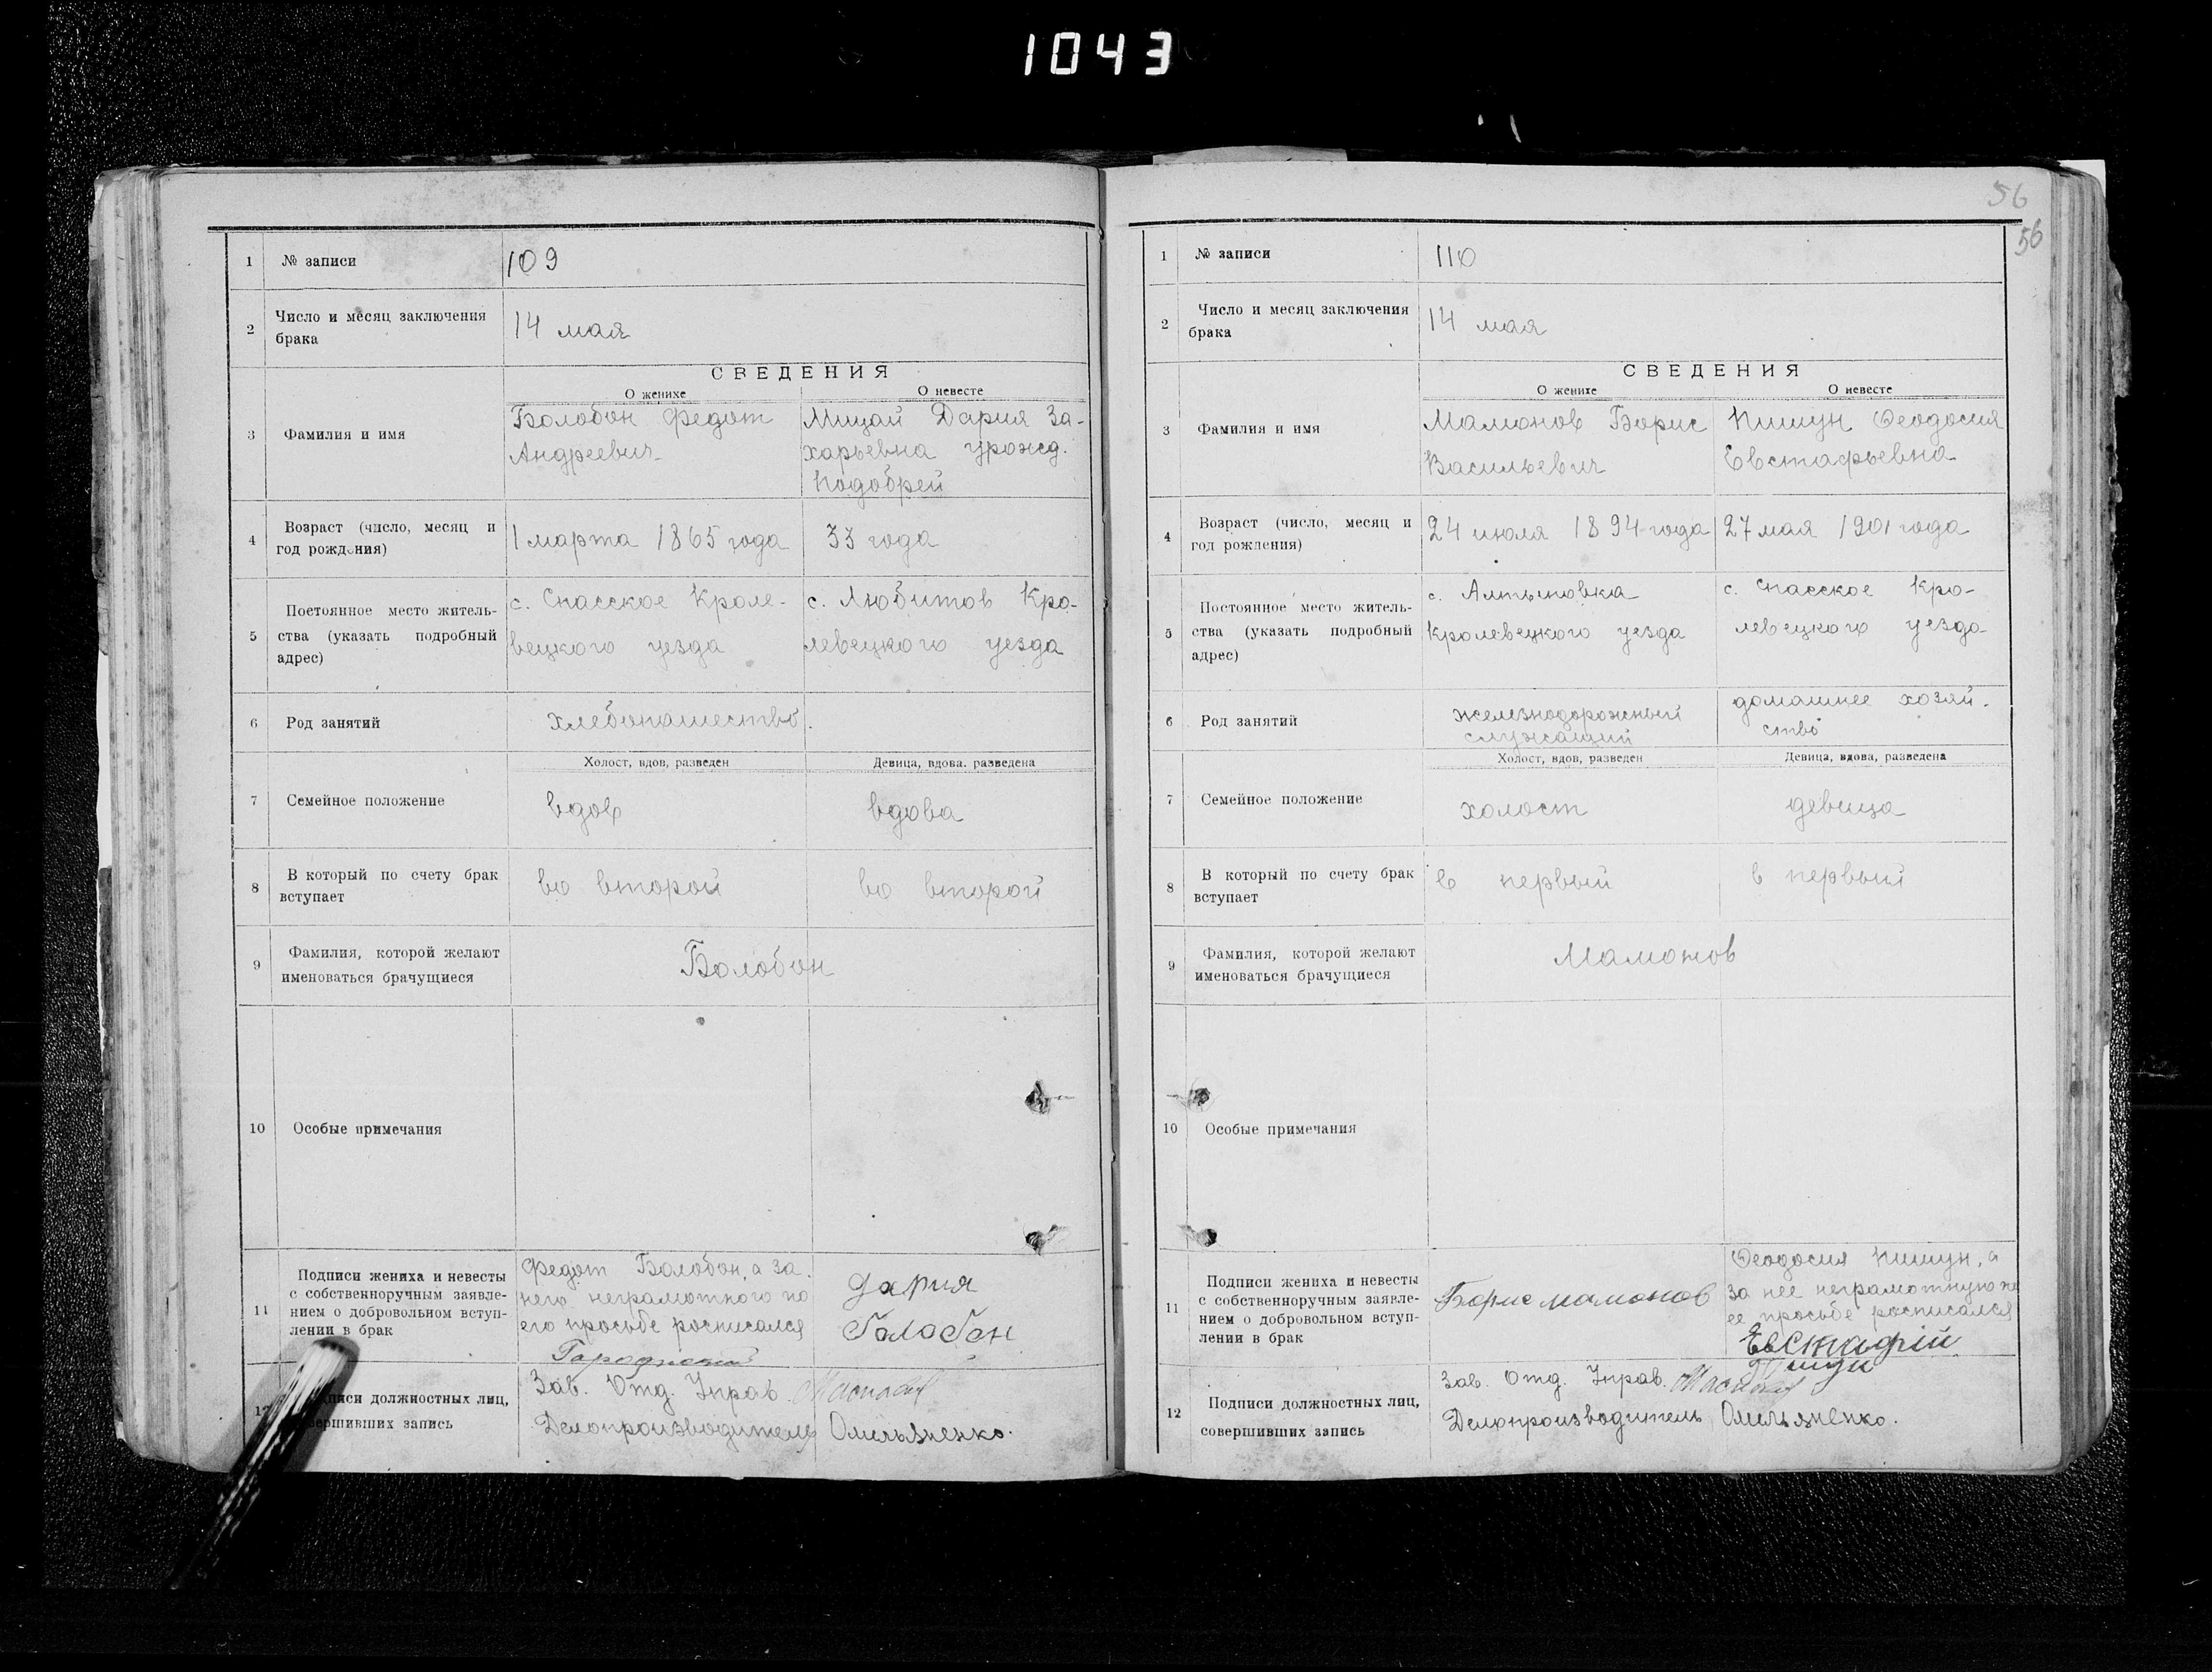 1043
1 № записи 109
2 Число и месяц заключения
брака
14 мая
СВЕДЕНИЯ
О женихе О невесте
3 Фамилия и имя
Болобон Федот
Андреевич
Мицай Дария За-
харьевна урожд.
Подобрей
4 Возраст (число, месяц и
год рождения)
1 марта 1865 года
33 года
5 Постоянное место житель-
ства (указать подробный
адрес)
с. Спасское Кроле-
вецкого уезда
с. Любитов Кро-
левецкого уезда
6 Род занятий
хлебопашество.
Холост, вдов, разведен Девица, вдова. разведена
7 Семейное положение
вдов
вдова
8 В который по счету брак
вступает
во второй
во второй
9 Фамилия, которой желают
именоваться брачущиеся
Болобон
10 Особые примечания
11 Подписи жениха и невесты
с собственноручным заявле-
нием о добровольном вступ-
лении в брак
Федот Болобон, а за
него неграмотного по
его просьбе росписался
Дария
Болобон
12 должностных лиц,
запись
Зав. Отд. Управ.
Делопроизводитель Омельяненко.
56
56
1 № записи 110
2 Число и месяц заключения
брака
14 мая
СВЕДЕНИЯ
О женихе О невесте
3 Фамилия и имя
Мамонов Борис
Васильевич
Пишун Феодосия
Евстафьевна
4 Возраст (число, месяц и
год рождения)
24 июля 1894 года
27 мая 1901 года
5 Постоянное место житель-
ства (указать подробный
адрес)
с. Алтыновка
Кролевецкого уезда
с. Спасское Кро-
левецкого уезда
6 Род занятий
железнодорожный
служащий
домашнее хозяй-
ство
Холост, вдов, разведен Девица, вдова, разведена
7 Семейное положение
холост
девица
8 В который по счету брак
вступает
в первый
в первый
9 Фамилия, которой желают
именоваться брачущиеся
Мамонов
10 Особые примечания
11 Подписи жениха и невесты
с собственноручным заявле-
нием о добровольном вступ-
лении в брак
Борис Мамонов
Феодосия Пишун, а
за нее неграмотную по
ее просьбе росписался
Евстафій
Пишун
12 Подписи должностных лиц,
совершивших запись
Зав. Отд. Управ.
Делопроизводитель Омельяненко.